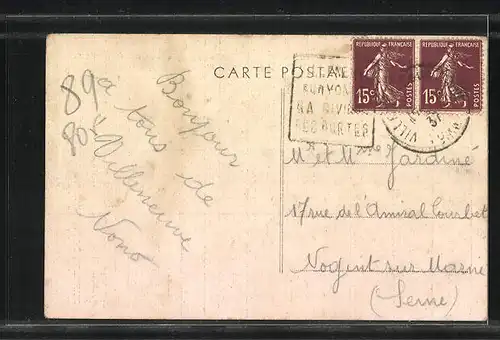 CARTE POSTALE
REPUBLIQUE FRANÇAISE
15c
POSTES
REPUBLIQUE FRANÇAISE
15c
POSTES
37
89
80
Bonjour
à tous de
Villeneuve
Nono
M et M Jardiné
17 rue de l'Amiral Courbet
Nogent sur Marne
(Seine)